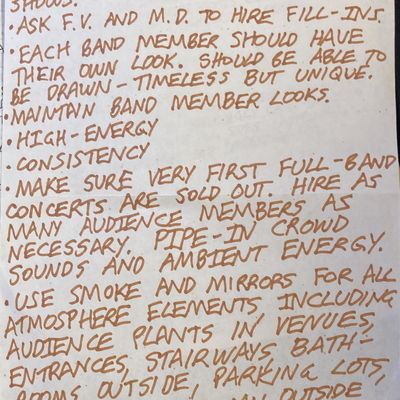 SHOWS.
• ASK F.V. AND M.D. TO HIRE FILL-INS
• EACH BAND MEMBER SHOULD HAVE
THEIR OWN LOOK. SHOULD BE ABLE TO
BE DRAWN - TIMELESS BUT UNIQUE.
• MAINTAIN BAND MEMBER LOOKS.
• HIGH-ENERGY
• CONSISTENCY
• MAKE SURE VERY FIRST FULL-BAND
CONCERTS ARE SOLD OUT. HIRE AS
MANY AUDIENCE MEMBERS AS
NECESSARY. PIPE-IN CROWD
SOUNDS AND AMBIENT ENERGY.
• USE SMOKE AND MIRRORS FOR ALL
ATMOSPHERE ELEMENTS INCLUDING
AUDIENCE PLANTS IN VENUES,
ENTRANCES, STAIRWAYS, BATH-
ROOMS OUTSIDE, PARKING LOTS,
OUTSIDE